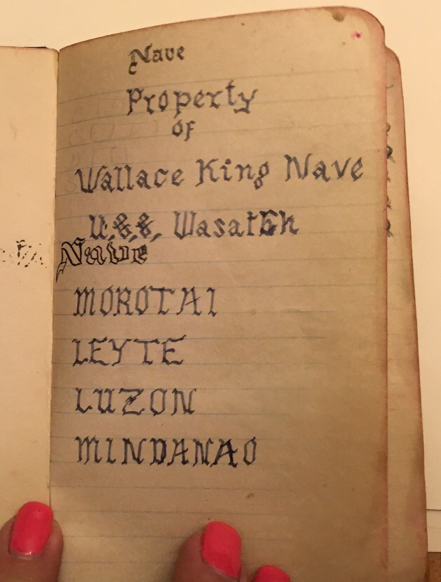 Nave
Property
of
Wallace King Nave
U.S.S. Wasatch
Nave
MOROTAI
LEYTE
LUZON
MINDANAO